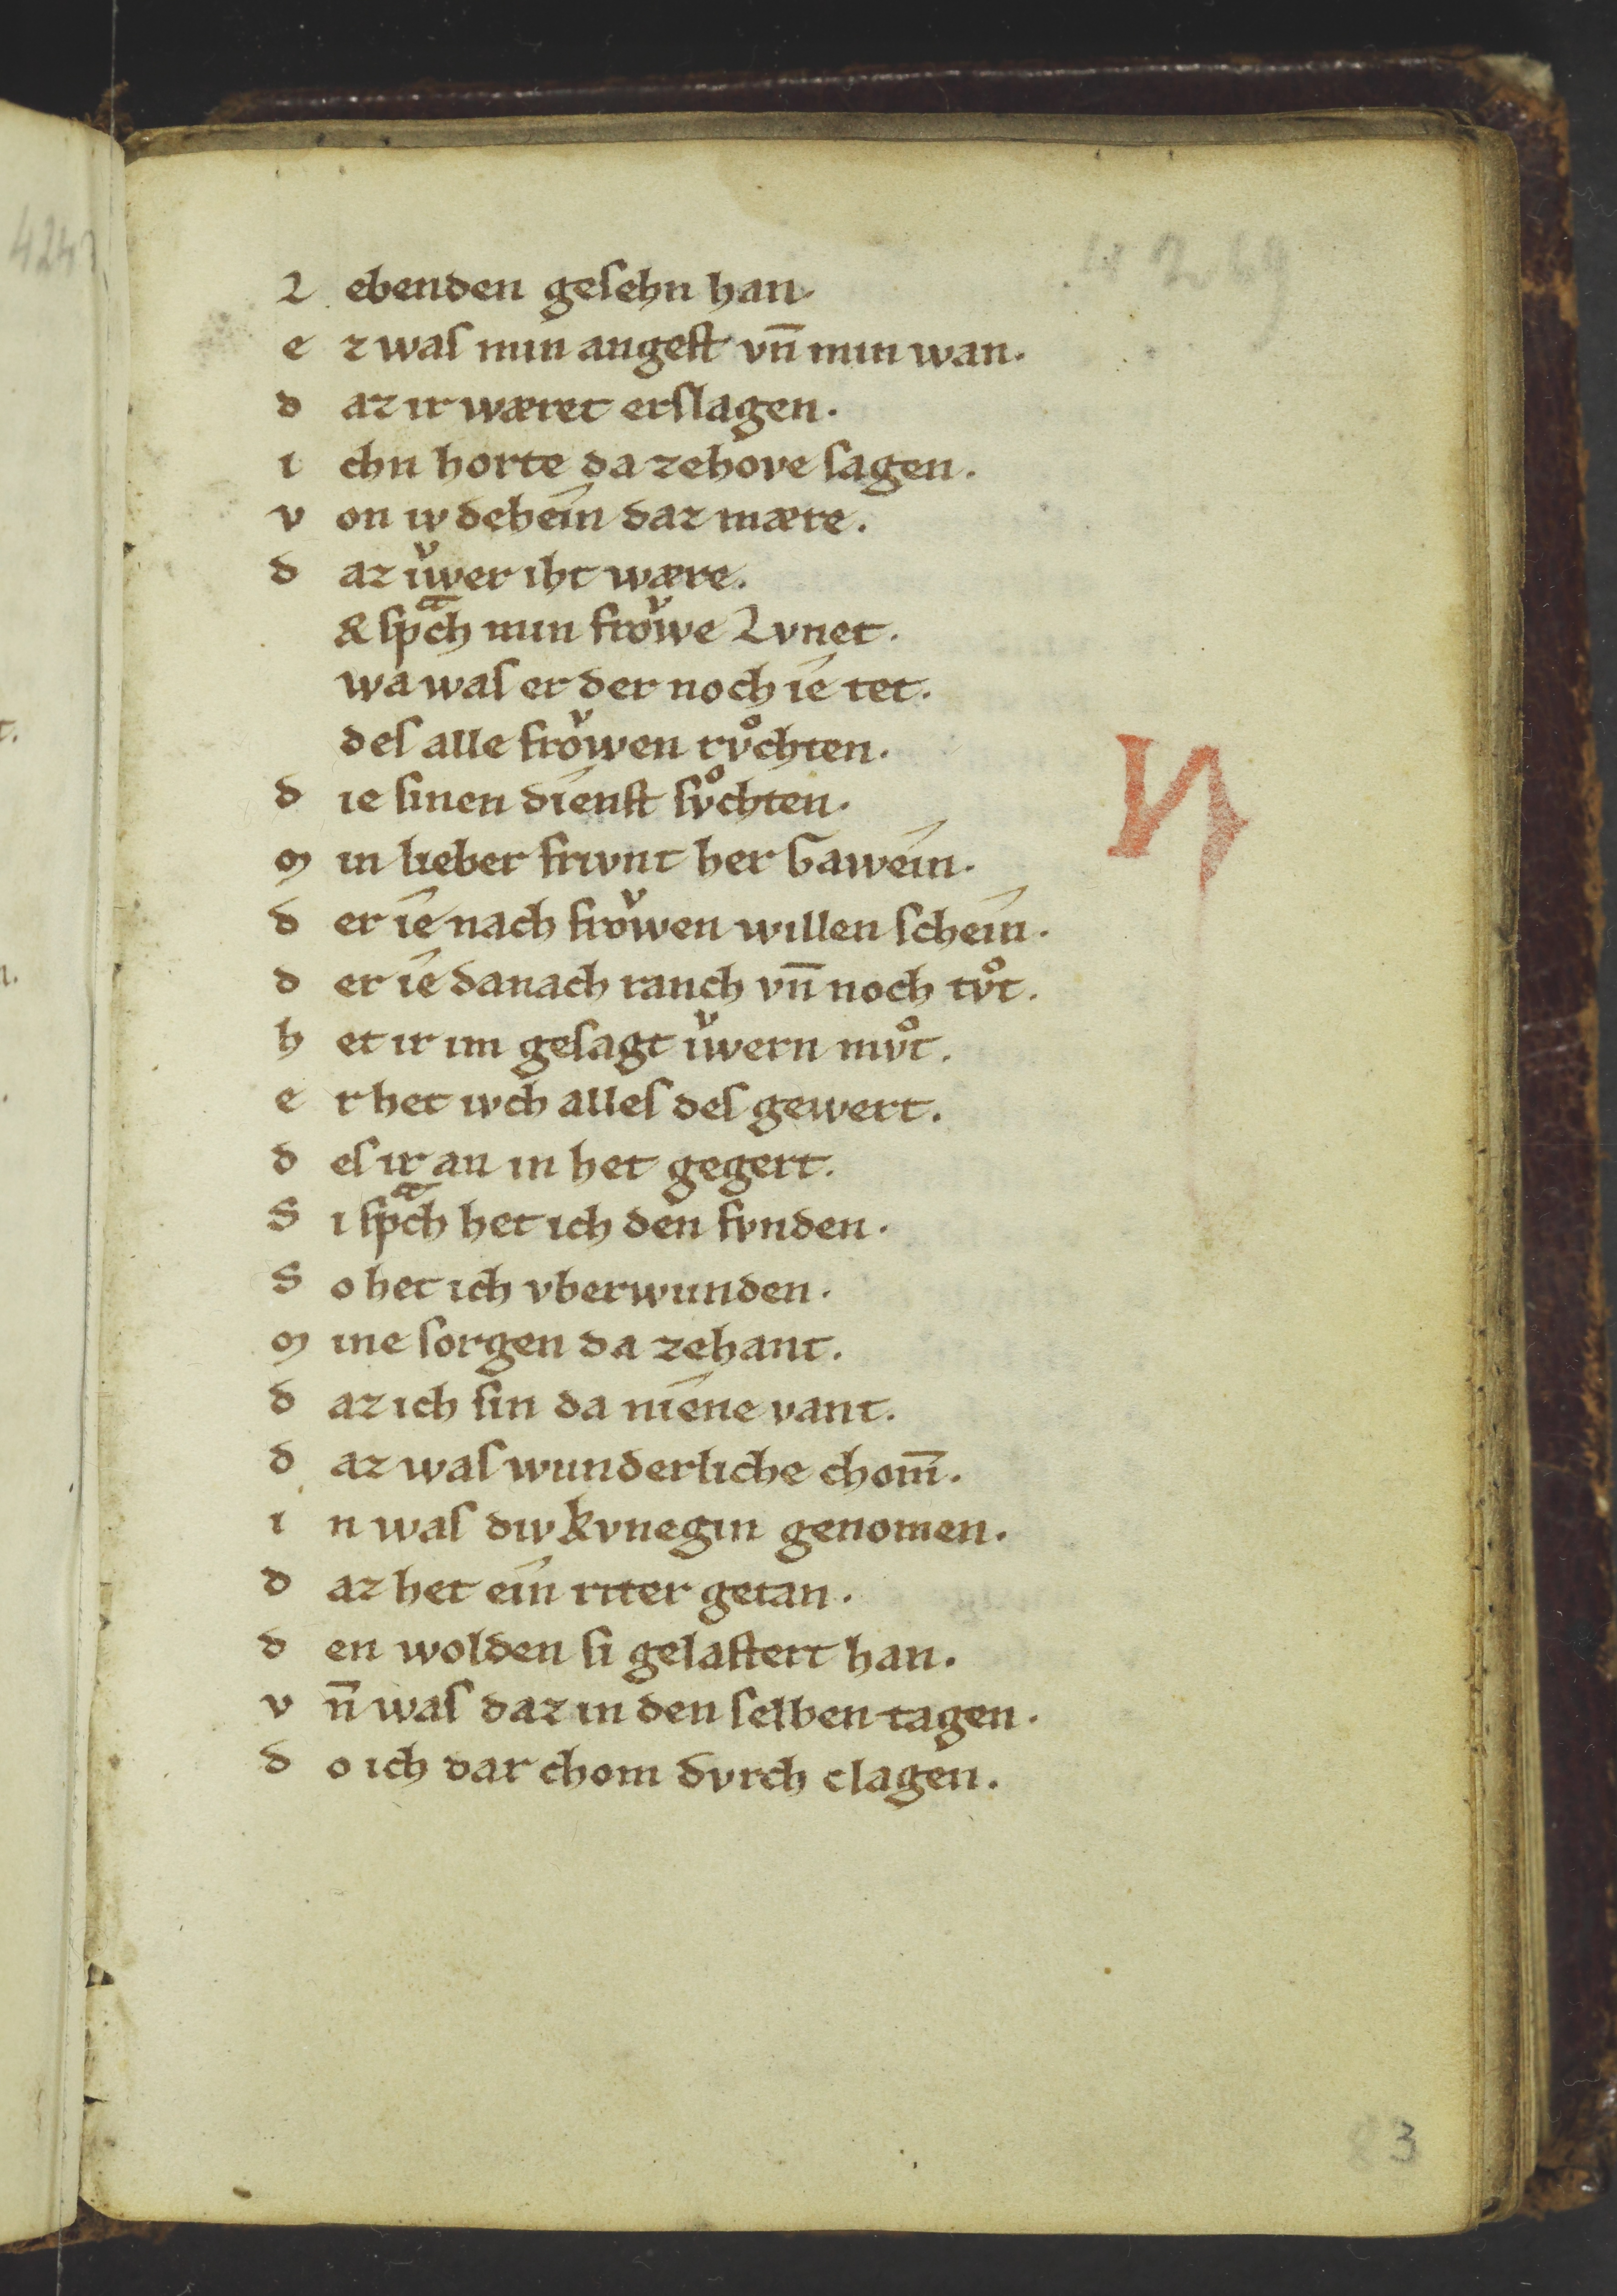 424
4269
L ebenden gesehn han.
e z was min angest vn̄ min wan.
d az ir wæret erslagen.
i chn horte da zehove sagen.
v on iv dehein daz mære.
d az iwͮer iht wære.
Er spᵃch min froͮwe Lvnet.
wa was er der noch ie tet.
des alle froͮwen rvͦchten.
d ie sinen dienst svͦchten.
m in lieber frivnt her Gawein.
d er ie nach froͮwen willen schein.
d er ie danach ranch vn̄ noch tvͦt.
h et ir im gesagt iwͮern mvͦt.
e r het ivch alles des gewert.
d es ir an in het gegert.
S i spᵃch het ich den fvnden.
S o het ich vberwunden.
m ine sorgen da zehant.
d az ich sin da niene vant.
d az was wunderliche chom̄.
i n was div kvnegin genomen.
d az het ein riter getan.
d en wolden si gelastert han.
v n̄ was daz in den selben tagen.
d o ich dar chom dvrch clagen.
N
83